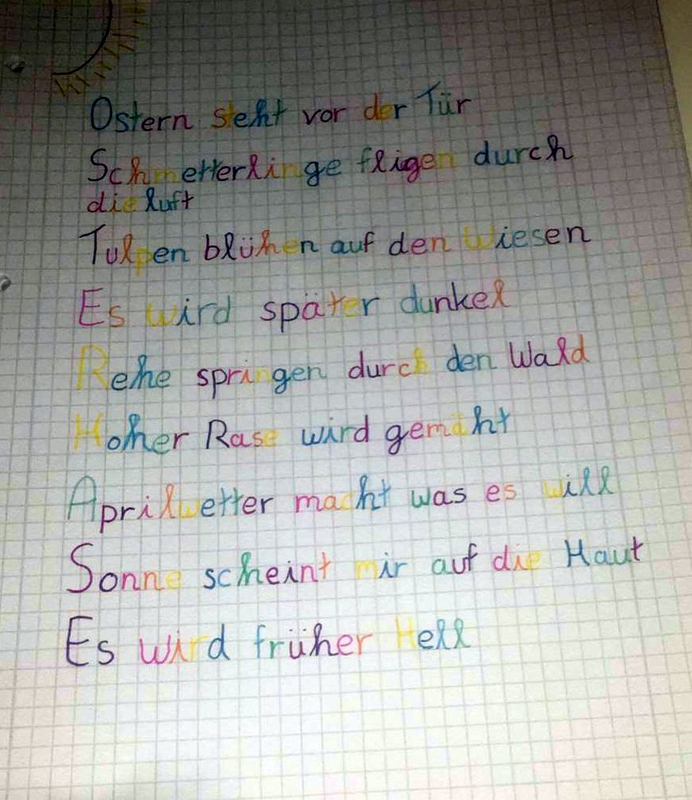 Ostern steht vor der Tür
Schmetterlinge fligen durch
die luft
Tulpen blühen auf den Wiesen
Es wird später dunkel
Rehe springen durch den Wald
Hoher Rase wird gemäht
Aprilwetter macht was es will
Sonne scheint mir auf die Haut
Es wird früher Hell